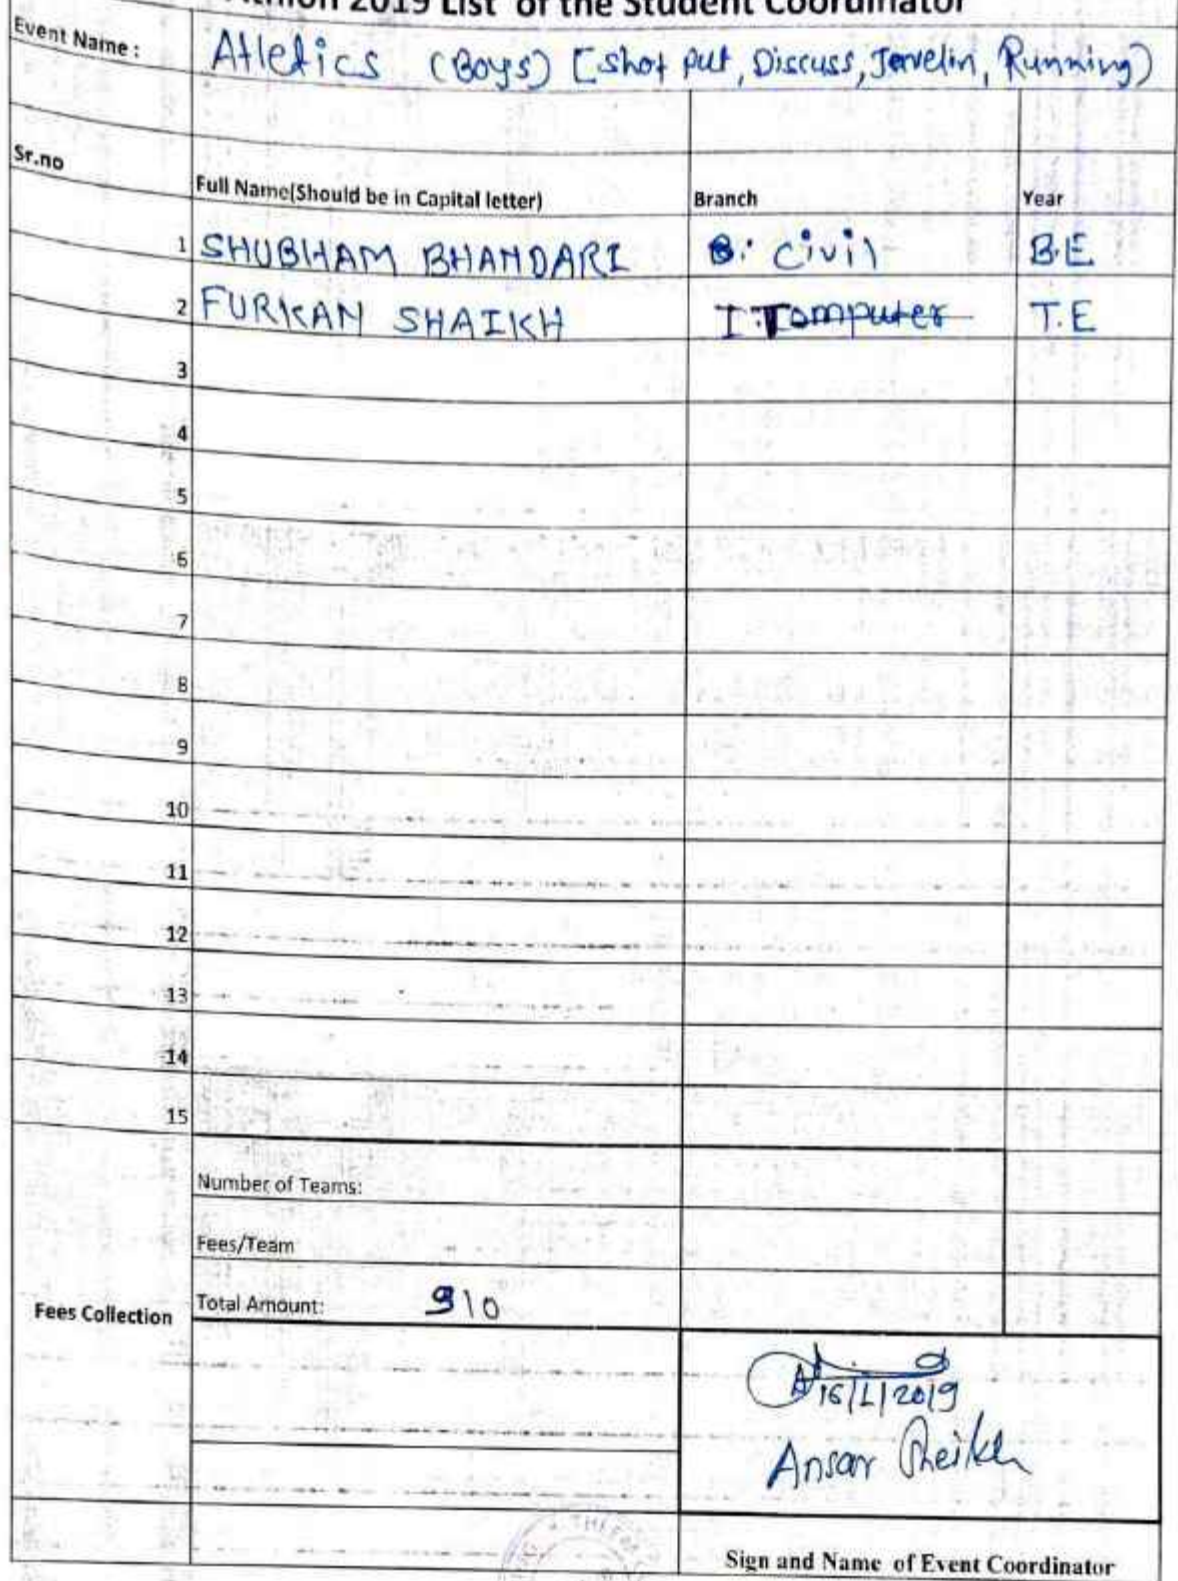 2019 List of the Student Coordinator
Event Name : Atletics (Boys) [shot put, Discuss, Jevelin, Running)
Sr.no Full Name(Should be in Capital letter) Branch Year
1 SHUBHAM BHANDARI Civil B.E
2 FURKAN SHAIKH Computer T.E
3
4
5
6
7
8
9
10
11
12
13
14
15
Number of Teams:
Fees/Team
Fees Collection Total Amount: 910
16/1/2019
Ansar Sheikh
Sign and Name of Event Coordinator